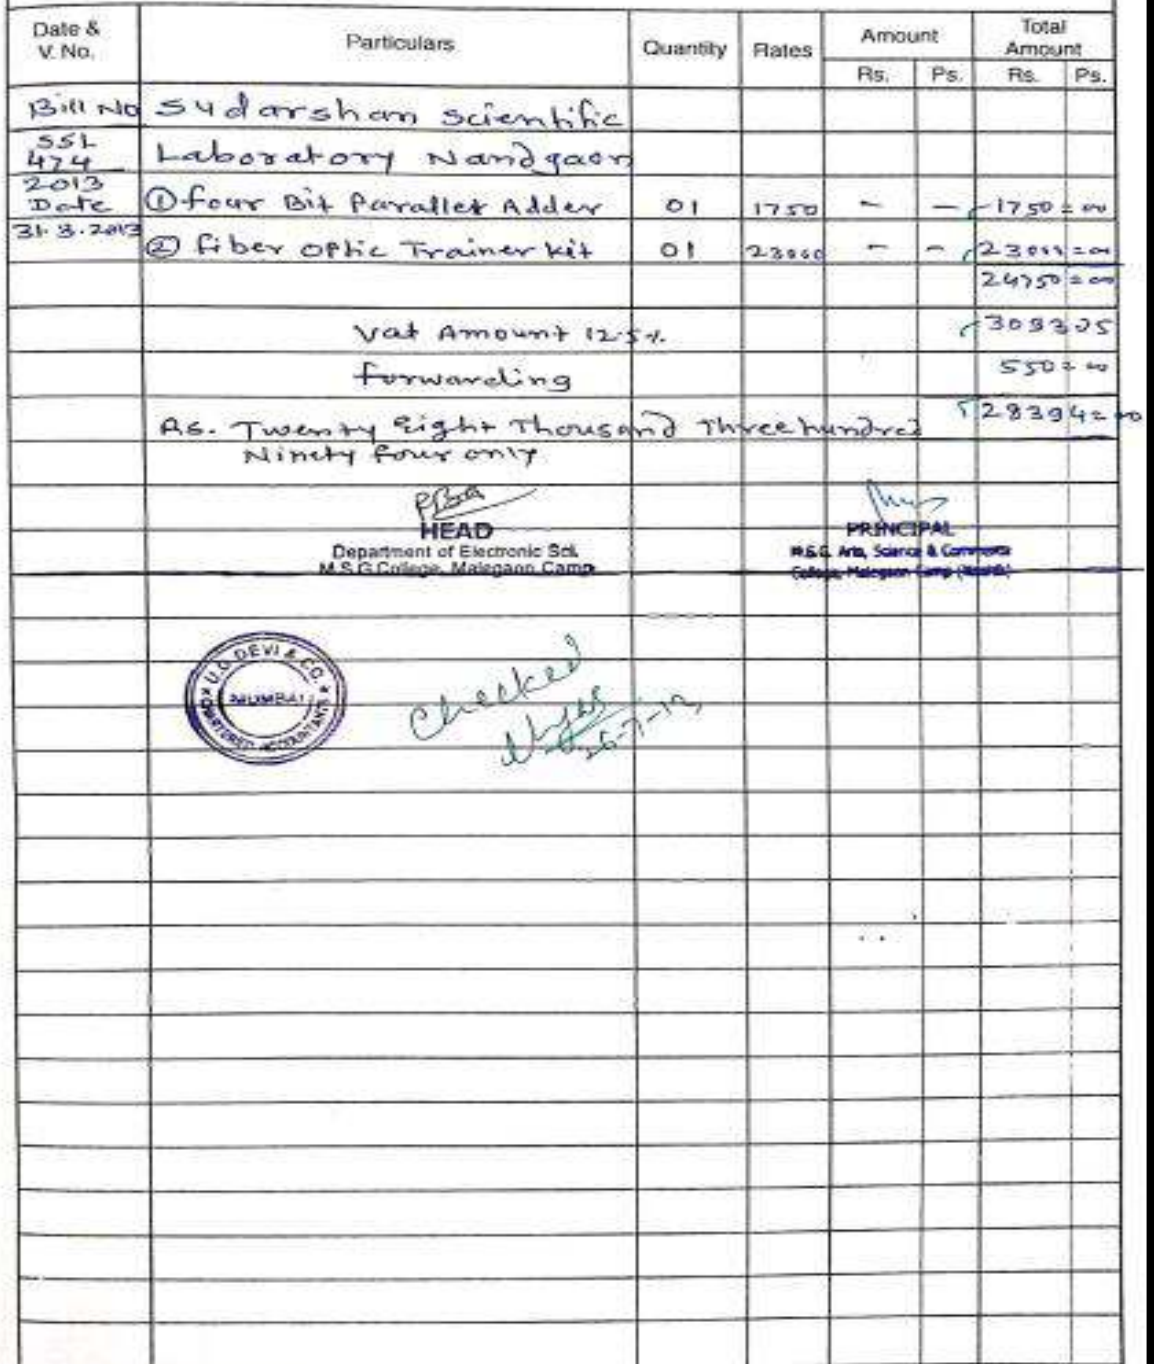 Date & V. No. Particulars Quantity Rates Amount Total Amount
Rs. Ps. Rs. Ps.
Bill No Sudarshan Scientific
SSL 474 Laboratory Nandgaon
2013
Date ① four Bit Parallel Adder 01 1750 - - 1750=00
31.3.2013 ② fiber optic Trainer kit 01 23000 - - 23000=00
24750=00
Vat Amount 12.5%. 3093=75
forwarding 550=00
28394=00
Rs. Twenty Eight Thousand Three hundred
Ninety four only
HEAD
Department of Electronic Sci.
M.S.G College, Malegaon Camp
PRINCIPAL
M.S.G. Arts, Science & Commerce
College, Malegaon Camp (Nashik)
U.G. DEVI & CO.
MUMBAI
CHARTERED ACCOUNTANTS
Checked
26-7-13